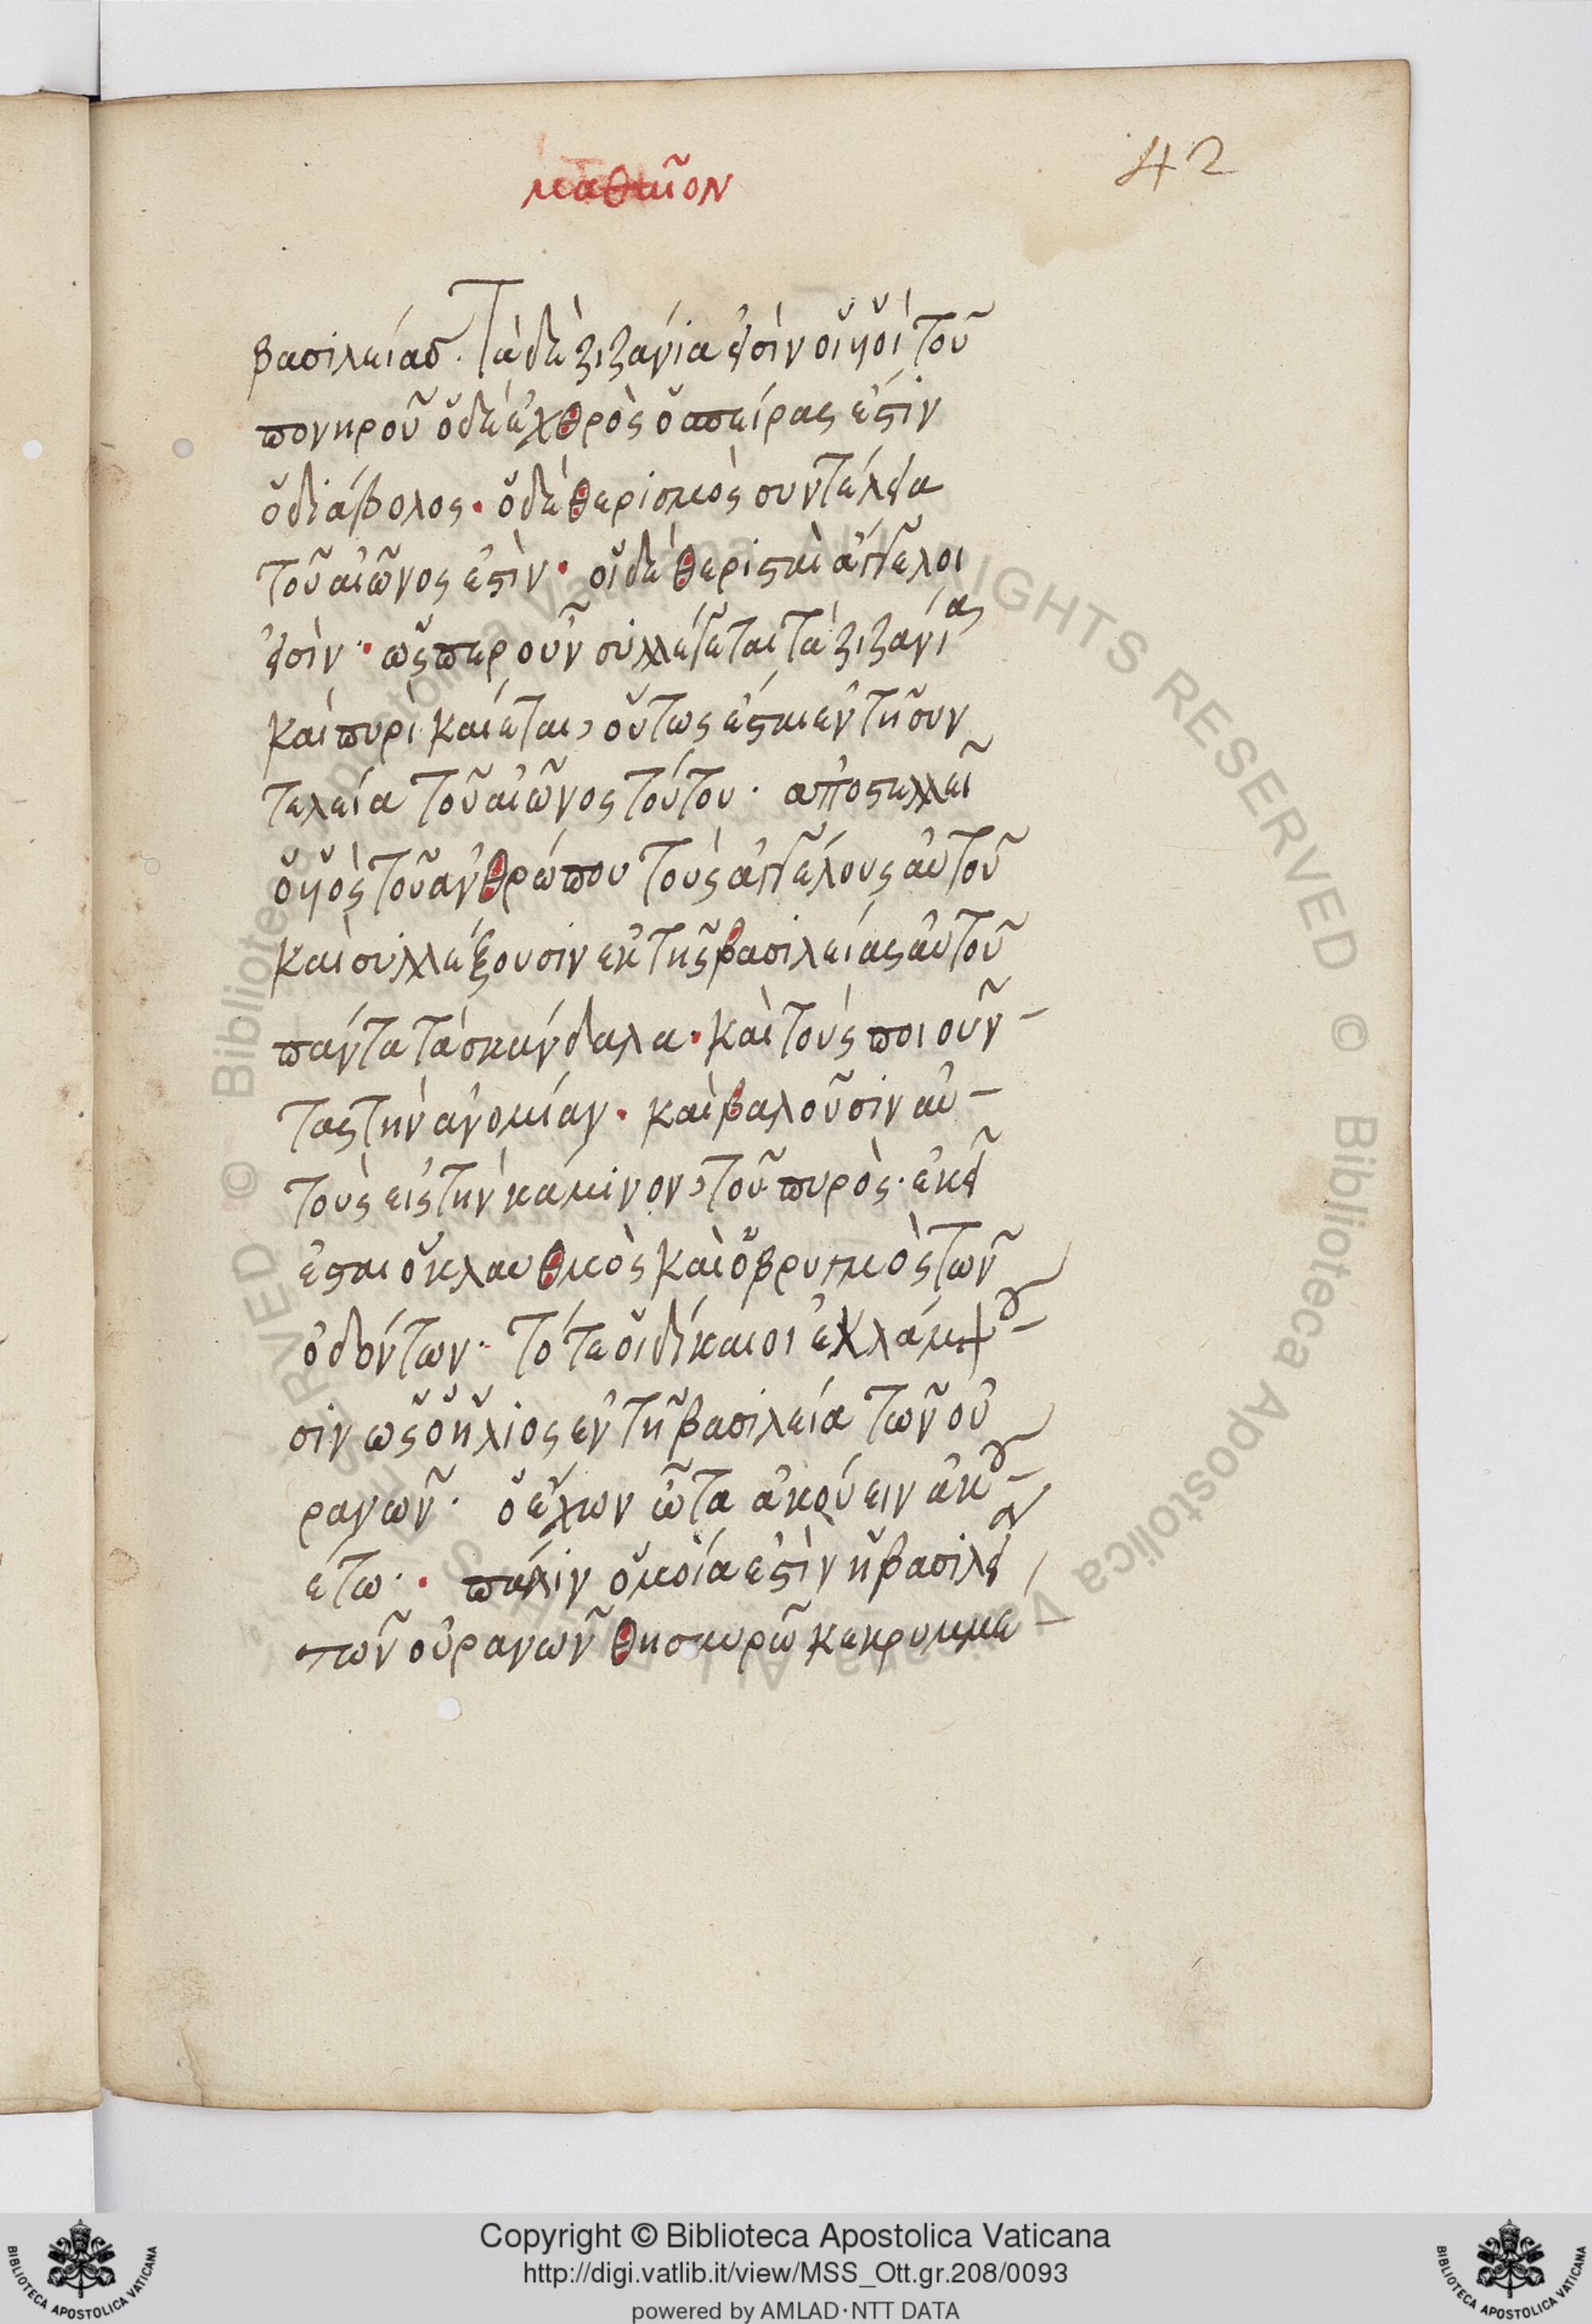 ματθαῖον
42
βασιλείασ. Τὰ δὲ ζιζάνια εἰσὶν οἵ ὑοὶ τοῦ
πονηροῦ ὅ δὲ ἐχθρὸς ὅ σπείρας ἐστὶν
ὅ διάβολος. ὅ δὲ θερισμὸς συντέλεια
τοῦ αἰῶνος ἐστὶν. οἵ δὲ θερισταὶ ἄγγελοι
εἰσὶν. ὥσπερ οὖν συλλέγεται τὰ ζιζάνια
καὶ πυρὶ καίεται, οὕτως ἔσται ἐν τῆ συν
τελεία τοῦ αἰῶνος τούτου. ἀποστελλεῖ
ὅ ὑὸς τοῦ ἀνθρώπου τοὺς ἀγγέλους αὐτοῦ
καὶ συλλέξουσιν ἐκ τῆς βασιλείας αὐτοῦ
πάντα τὰ σκάνδαλα. καὶ τοὺς ποιοῦν-
τας τὴν ἀνομίαν. καὶ βαλοῦσιν αὐ-
τοὺς εἰς τὴν κάμινον, τοῦ πυρὸς. ἐκεῖ
ἔσται ὅ κλαυθμὸς καὶ ὅ βρυγμὸς τῶν
ὀδόντων. τότε οἵ δίκαιοι ἐκλάμψου-
σιν ὡς ὅ ἥλιος ἐν τῆ βασιλεία τῶν οὐ
ρανῶν. ὅ ἔχων ὦτα ἀκούειν ἀκου-
έτω. πάλιν ὅμοία ἐστὶν ἥ βασιλεία
τῶν οὐρανῶν θησαυρῶ κεκρυμμε-
RESERVED © Biblioteca Apostolica Vaticana ALL RIGHTS RESERVED © Biblioteca Apostolica Vaticana ALL RIGHTS
Copyright © Biblioteca Apostolica Vaticana
http://digi.vatlib.it/view/MSS_Ott.gr.208/0093
powered by AMLAD·NTT DATA
BIBLIOTECA APOSTOLICA VATICANA
BIBLIOTECA APOSTOLICA VATICANA